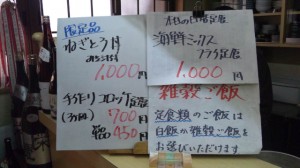 限定品
ねぎとろ丼
1,000円
手作りコロッケ定食
700円
単品 450円
本日の日替定食
海鮮ミックス
フライ定食
1,000円
雑穀ご飯
定食類のご飯は
白飯か雑穀ご飯を
お選びいただけます